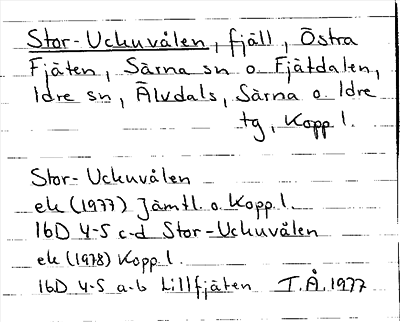 Stor-Uckuvålen, fjäll, Östra
Fjäten, Särna sn o Fjätdalen,
Idre sn, Älvdals, Särna o. Idre
tg, Kopp l.
Stor-Uckuvålen
ek (1977) Jämtl. o. Kopp l.
16D 4-5 c-d Stor-Uckuvålen
ek (1978) Kopp l.
16D 4-5 a-b Lillfjäten T.Å. 1977